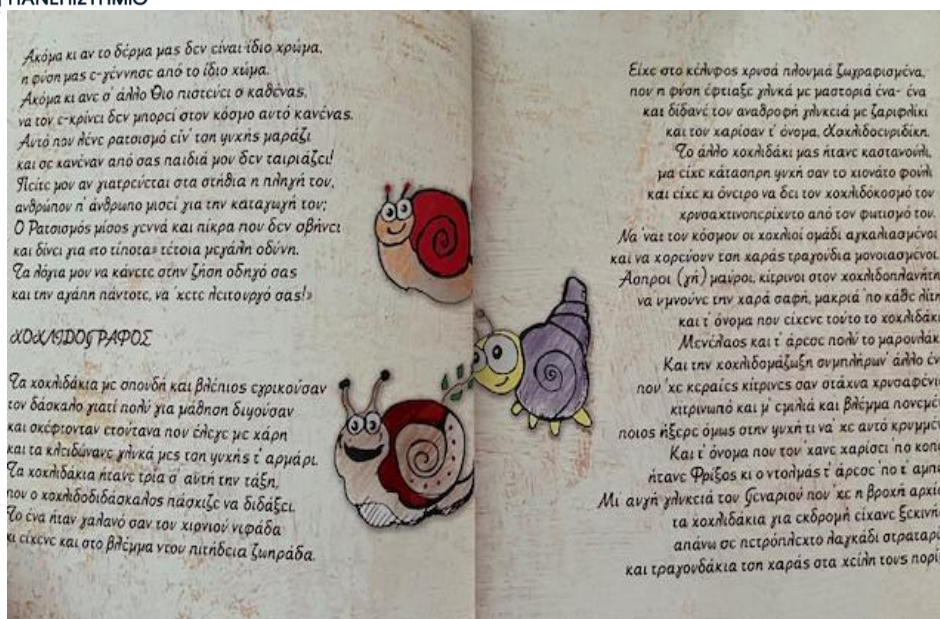 ΠΑΝΕΠΙΣΤΗΜΙΟ
Ακόμα κι αν το δέρμα μας δεν είναι ίδιο χρώμα,
η φύση μας ε-γέννησε από το ίδιο χώμα.
Ακόμα κι ανε σ' άλλο Θιο πιστεύει ο καθένας,
να τον ε-κρίνει δεν μπορεί στον κόσμο αυτό κανένας.
Αυτό που λένε ρατσισμό είν' τση ψυχής μαράζι
και σε κανέναν από σας παιδιά μου δεν ταιριάζει!
Πείτε μου αν γιατρεύεται στα στήθια η πληγή του,
ανθρώπου π' άνθρωπο μισεί για την καταγωγή του;
Ο Ρατσισμός μίσος γεννά και πίκρα που δεν σβήνει
και δίνει για «το τίποτα» τέτοια μεγάλη οδύνη.
Τα λόγια μου να κάνετε στην ζήση οδηγό σας
και την αγάπη πάντοτε, να 'χετε λειτουργό σας!»
ΧΟΧΛΙΔΟΓΡΑΦΟΣ
Τα χοχλιδάκια με σπουδή και βλέπιος εγρικούσαν
τον δάσκαλο γιατί πολύ για μάθηση διψούσαν
και σκέφτονταν ετούτανα που έλεγε με χάρη
και τα κλειδώνανε γλυκά μες τση ψυχής τ' αρμάρι.
Τα χοχλιδάκια ήτανε τρία σ' αυτή την τάξη,
που ο χοχλιδοδιδάσκαλος πάσχιζε να διδάξει.
Το ένα ήταν γαλανό σαν του χιονιού νιφάδα
κι είχενε και στο βλέμμα ντου πιτήδεια ζωηράδα.
Είχε στο κέλυφος χρυσά πλουμιά ζωγραφισμένα,
που η φύση έφτιαξε γλυκά με μαστοριά ένα- ένα
και διδανέ του αναθροφή γλυκειά με ζαριφλίκι
και του χαρίσαν τ' όνομα, Χοχλιδοευριδίκη.
Το άλλο χοχλιδάκι μας ήτανε καστανούλι,
μα είχε κάτασπρη ψυχή σαν το χιονάτο φούλι
και είχε κι όνειρο να δει τον χοχλιδόκοσμό του
χρυσαχτινοπερίχυτο από τον φωτισμό του.
Να 'ναι του κόσμου οι χοχλιοί ομάδι αγκαλιασμένοι
και να χορεύουν τση χαράς τραγούδια μονοιασμένοι.
Άσπροι (γή) μαύροι, κίτρινοι στον χοχλιδοπλανήτη
να υμνούνε την χαρά σαφή, μακριά 'πο κάθε λίτη
και τ' όνομα που είχενε τούτο το χοχλιδάκι
Μενέλαος και τ' άρεσε πολύ το μαρουλάκ
Και την χοχλιδομάζωξη συμπλήρων' άλλο έν
που 'χε κεραίες κίτρινες σαν στάχυα χρυσαφένι
κιτρινωπό και μ' εμιλιά και βλέμμα πονεμέ
ποιος ήξερε όμως στην ψυχή τι να 'χε αυτό κρυμμέν
Και τ' όνομα που του 'χανε χαρίσει 'πο κοπε
ήτανε Φρίξος κι ο ντολμάς τ' άρεσε 'πο τ' αμπε
Μι αυγή γλυκειά του Γεναριού που 'χε η βροχή αρχί
τα χοχλιδάκια για εκδρομή είχανε ξεκινή
απάνω σε πετρόπλεχτο λαγκάδι στραταρι
και τραγουδάκια τση χαράς στα χείλη τους πορί